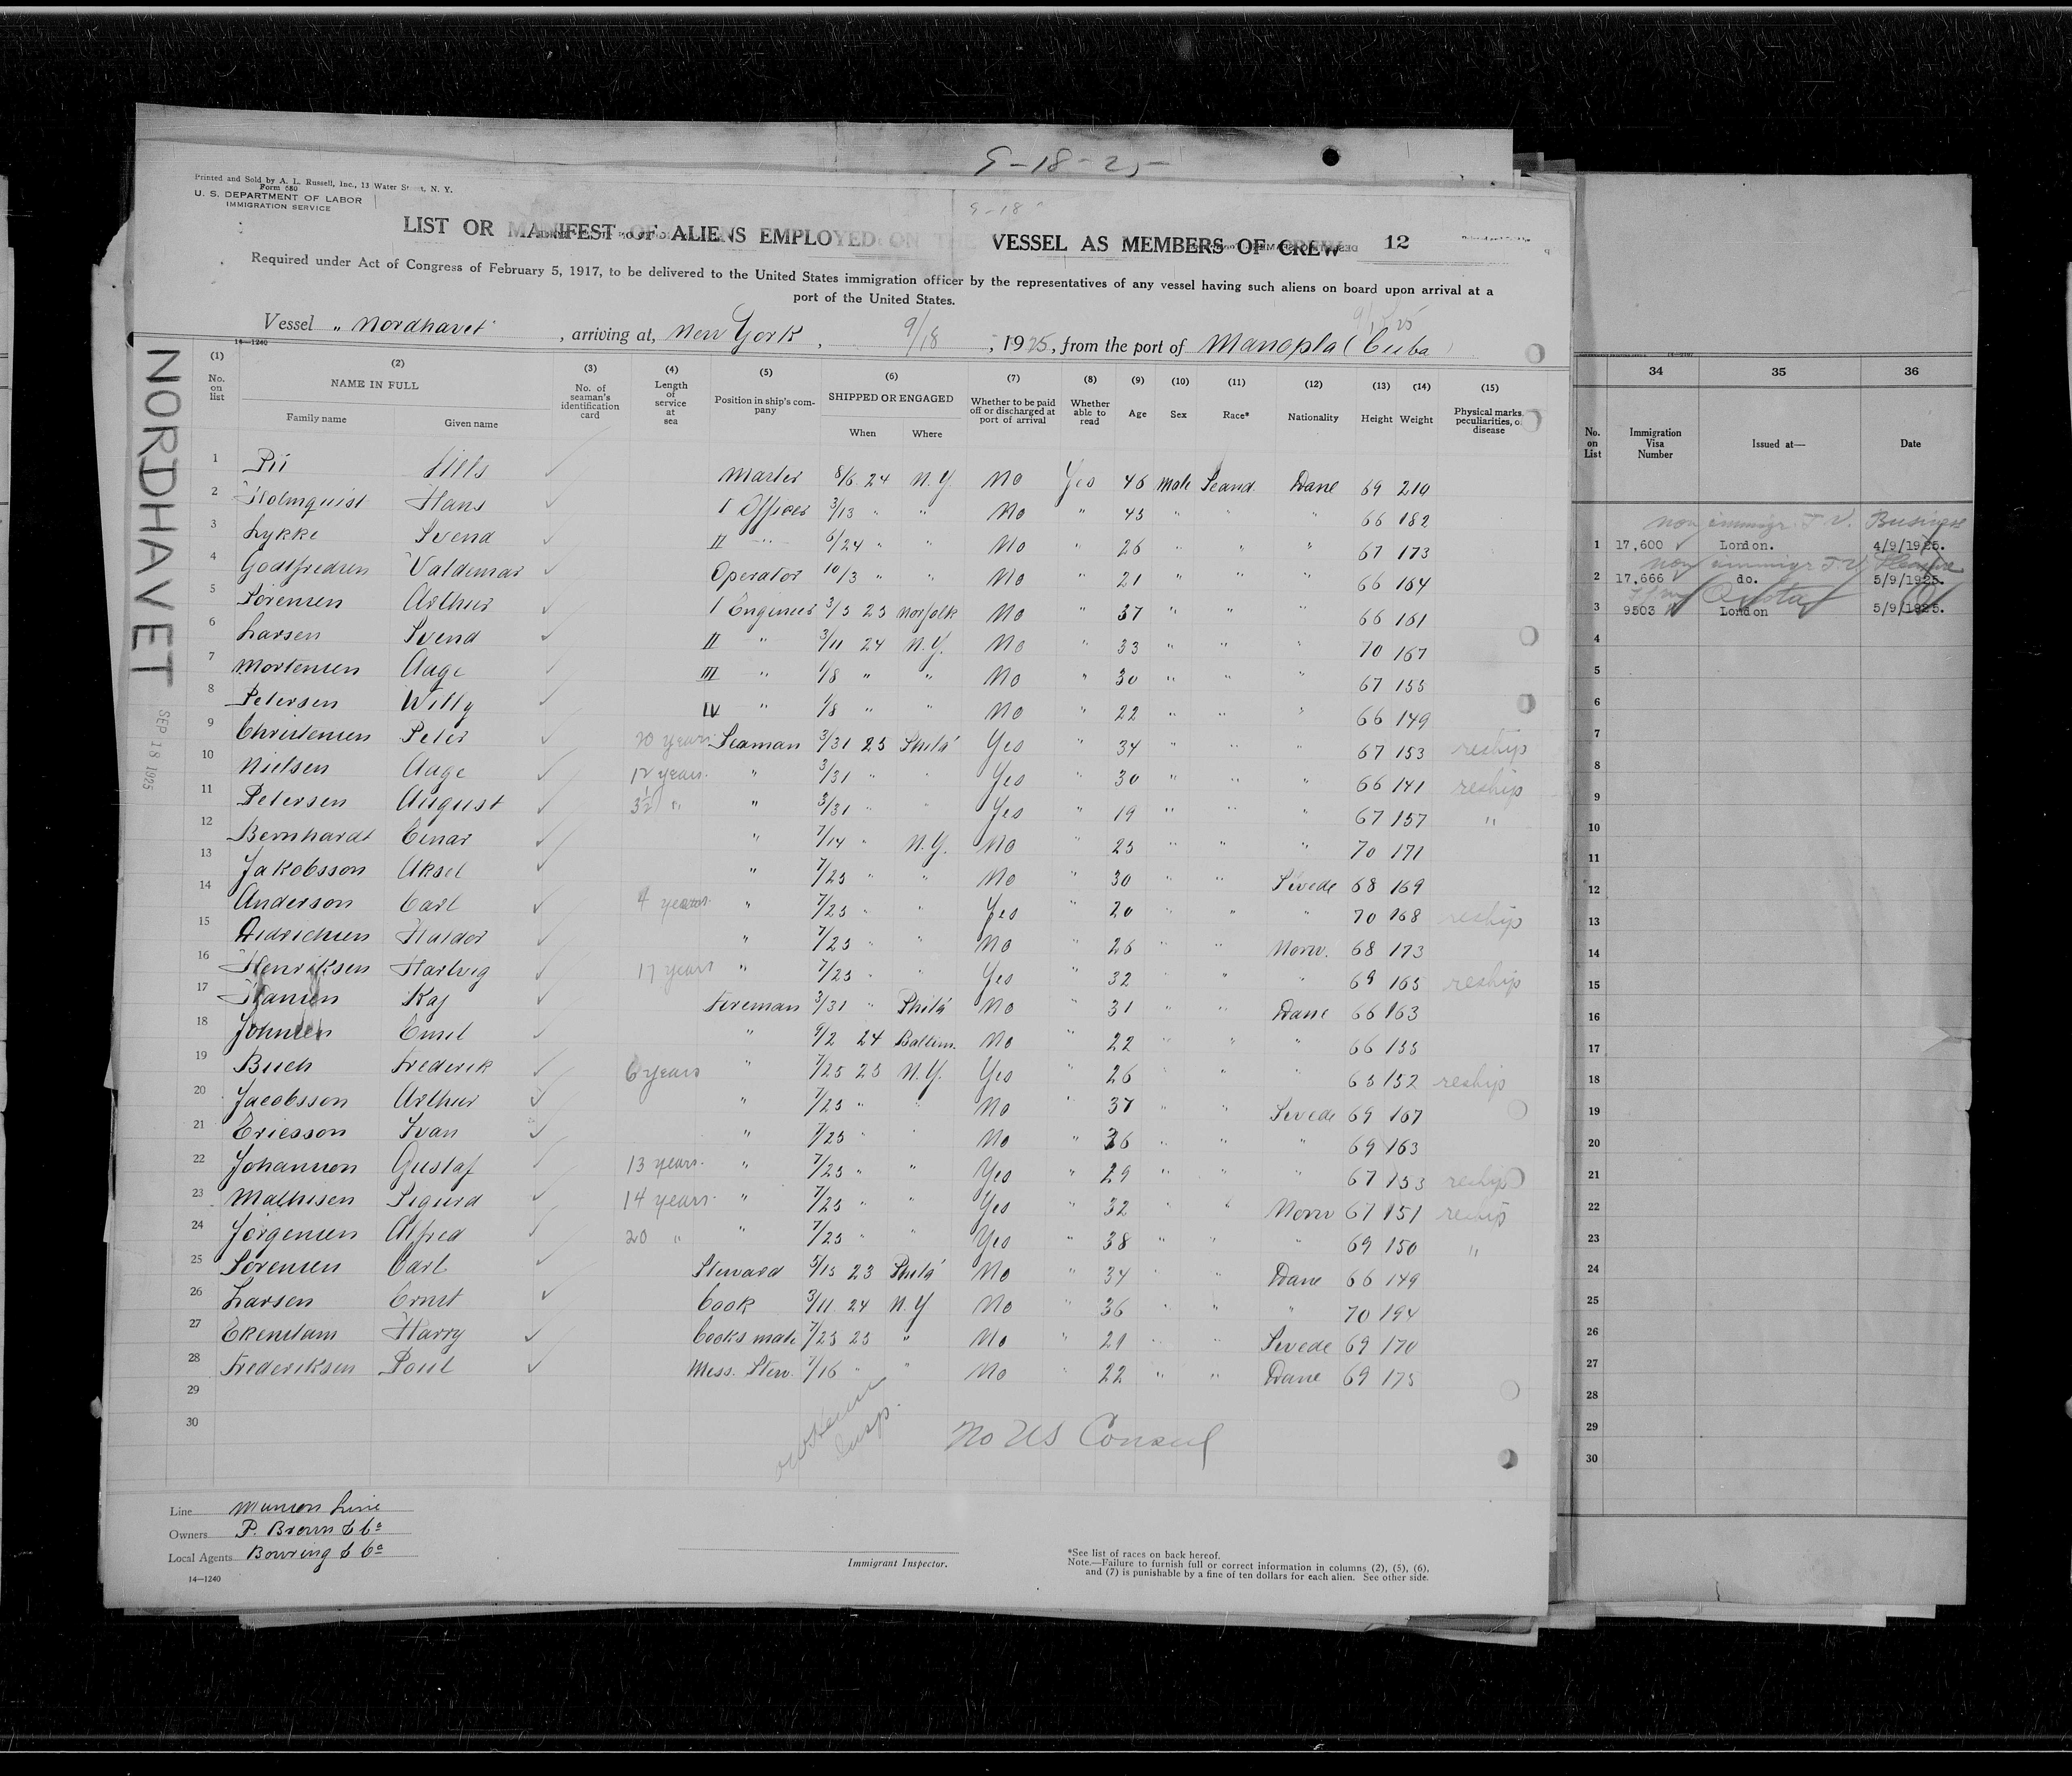 9-18-25
Printed and Sold by A. L. Russell, Inc., 13 Water Street, N. Y.
Form 680
U. S. DEPARTMENT OF LABOR
IMMIGRATION SERVICE
9-18
LIST OR MANIFEST OF ALIENS EMPLOYED ON THE VESSEL AS MEMBERS OF CREW 12
Required under Act of Congress of February 5, 1917, to be delivered to the United States immigration officer by the representatives of any vessel having such aliens on board upon arrival at a
port of the United States.
Vessel "Nordhavet", arriving at, New York, 9/18, 1925, from the port of Manopla (Cuba)
14—1240
NORDHAVET
SEP 18 1925
(1) (2) (3) (4) (5) (6) (7) (8) (9) (10) (11) (12) (13) (14) (15)
No. on list NAME IN FULL Family name Given name No. of seaman's identification card Length of service at sea Position in ship's company SHIPPED OR ENGAGED When Where Whether to be paid off or discharged at port of arrival Whether able to read Age Sex Race* Nationality Height Weight Physical marks, peculiarities, or disease
1 Pii Nills Master 8/6 24 N.Y. No Yes 46 Male Scand. Dane 69 210
2 Holmquist Hans I Officer 3/13 " " No " 45 " " " 66 182
3 Lykke Svend II " 6/24 " " No " 26 " " " 67 173
4 Godtfredsen Valdemar Operator 10/3 " " No " 21 " " " 66 164
5 Sörensen Arthur I Engineer 3/5 25 Norfolk No " 37 " " " 66 161
6 Larsen Svend II " 3/11 24 N.Y. No " 33 " " " 70 167
7 Mortensen Aage III " 1/8 " " No " 30 " " " 67 155
8 Petersen Willy IV " 1/8 " " No " 22 " " " 66 149
9 Christensen Peter 20 years Seaman 3/31 25 Phila' Yes " 34 " " " 67 153 reship
10 Nielsen Aage 12 years " 3/31 " " Yes " 30 " " " 66 141 reship
11 Petersen August 3½ " " 3/31 " " Yes " 19 " " " 67 157 "
12 Bernhardt Einar " 7/14 " N.Y. No " 25 " " " 70 171
13 Jakobsson Aksel " 7/25 " " No " 30 " " Swede 68 169
14 Anderson Carl 4 years " 7/25 " " Yes " 20 " " " 70 168 reship
15 Didrichsen Haldor " 7/25 " " No " 26 " " Norw. 68 173
16 Henriksen Hartvig 17 years " 7/25 " " Yes " 32 " " " 69 165 reship
17 Hansen Kaj Fireman 3/31 " Phila' No " 31 " " Dane 66 163
18 Johnsen Emil " 9/2 24 Baltim. No " 22 " " " 66 155
19 Buch Frederik 6 years " 7/25 25 N.Y. Yes " 26 " " " 65 152 reship
20 Jacobsson Arthur " 7/25 " " No " 37 " " Swede 69 167
21 Ericsson Ivan " 7/25 " " No " 36 " " " 69 163
22 Johansson Gustaf 13 years " 7/25 " " Yes " 29 " " " 67 153 reship
23 Mathisen Sigurd 14 years " 7/25 " " Yes " 32 " " Norw 67 151 reship
24 Jörgensen Alfred 20 " " 7/25 " " Yes " 38 " " " 69 150 "
25 Sörensen Carl Steward 5/15 23 Phila' No " 34 " " Dane 66 149
26 Larsen Ernst Cook 3/11 24 N.Y No " 36 " " " 70 194
27 Ekendam Harry Cooks mate 7/25 25 " No " 21 " " Swede 69 170
28 Frederiksen Poul Mess. Stew. 7/16 " " No " 22 " " Dane 69 175
29
30
Insp.
No US Consul
Line Munson Line
Owners P. Brown & Co
Local Agents Bowring & Co
14—1240
Immigrant Inspector.
*See list of races on back hereof.
Note.—Failure to furnish full or correct information in columns (2), (5), (6),
and (7) is punishable by a fine of ten dollars for each alien. See other side.
34 35 36
No. on List Immigration Visa Number Issued at— Date
non immigr. T.V. Business
1 17,600 London. 4/9/1925.
non immigr T.V.
2 17,666 do. 5/9/1925.
Quota
3 9503 London 5/9/1925.
4
5
6
7
8
9
10
11
12
13
14
15
16
17
18
19
20
21
22
23
24
25
26
27
28
29
30